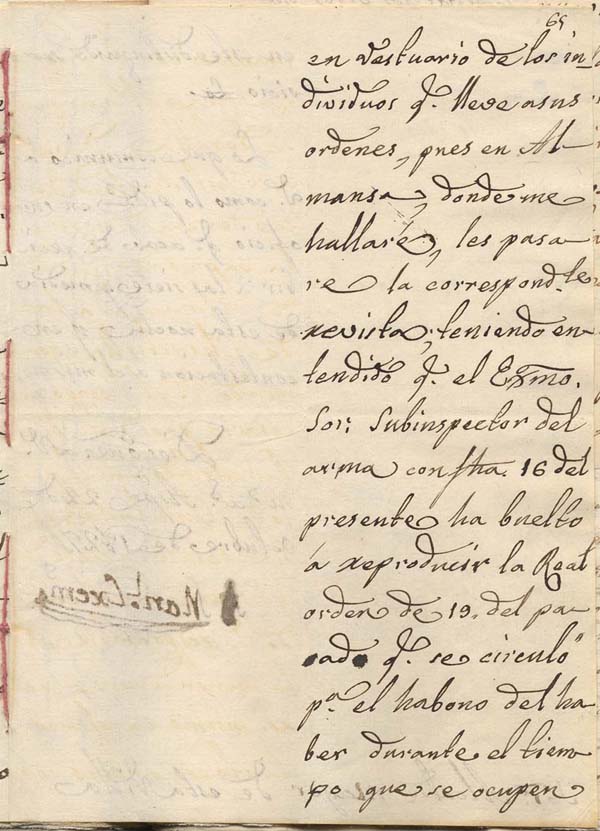 65
en Vestuario de los in-
dividuos q.e lleve a sus
ordenes, pues en Al-
mansa, donde me
hallaré, les pasa-
re la correspond.te
revista, teniendo en-
tendido q.e el Exmo.
Sor. Subinspector del
arma con fha. 16 del
presente ha buelto
á reproducir la Real
orden de 19. del pa-
sado q.e se circuló
p.a el habono del ha
ber durante el tiem-
po que se ocupen